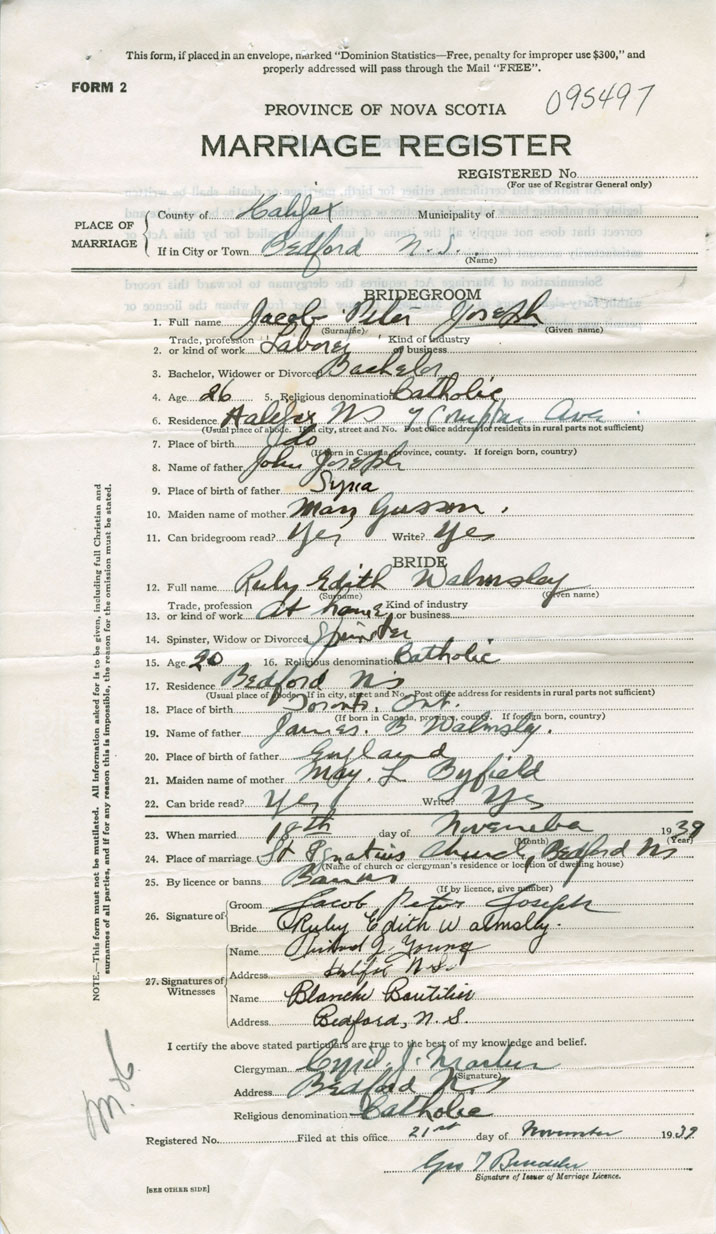 This form, if placed in an envelope, marked "Dominion Statistics—Free, penalty for improper use $300," and
properly addressed will pass through the Mail "FREE".
FORM 2
095497
PROVINCE OF NOVA SCOTIA
MARRIAGE REGISTER
REGISTERED No.
(For use of Registrar General only)
PLACE OF MARRIAGE
County of Halifax Municipality of
If in City or Town Bedford N.S.
(Name)
BRIDEGROOM
1. Full name Jacob Peter Joseph
(Surname) (Given name)
2. Trade, profession or kind of work Laborer Kind of industry or business
3. Bachelor, Widower or Divorced Bachelor
4. Age 26 5. Religious denomination Catholic
6. Residence Halifax NS 7 Ave
(Usual place of abode. If in city, street and No. Post office address for residents in rural parts not sufficient)
7. Place of birth do
(If born in Canada, province, county. If foreign born, country)
8. Name of father John Joseph
9. Place of birth of father Syria
10. Maiden name of mother Mary
11. Can bridegroom read? Yes Write? Yes
BRIDE
12. Full name Ruby Edith Walmsley
(Surname) (Given name)
13. Trade, profession or kind of work at home Kind of industry or business
14. Spinster, Widow or Divorced Spinster
15. Age 20 16. Religious denomination Catholic
17. Residence Bedford NS
(Usual place of abode. If in city, street and No. Post office address for residents in rural parts not sufficient)
18. Place of birth Toronto, Ont.
(If born in Canada, province, county. If foreign born, country)
19. Name of father James. B Walmsley.
20. Place of birth of father England
21. Maiden name of mother May. L Byfield
22. Can bride read? Yes Write? Yes
23. When married 18th day of November 1939
(Month) (Year)
24. Place of marriage St Ignatius Church, Bedford NS
(Name of church or clergyman's residence or location of dwelling house)
25. By licence or banns Banns
(If by licence, give number)
26. Signature of
Groom Jacob Peter Joseph
Bride Ruby Edith Walmsley.
27. Signatures of Witnesses
Name J. Young
Address Halifax N.S.
Name Blanche Boutilier
Address Bedford, N.S.
I certify the above stated particulars are true to the best of my knowledge and belief.
Clergyman Cyril J.
(Signature)
Address Bedford N.S
Religious denomination Catholic
Registered No. Filed at this office 21st day of November 1939
Geo T
Signature of Issuer of Marriage Licence.
[SEE OTHER SIDE]
NOTE.—This form must not be mutilated. All information asked for is to be given, including full Christian and
surnames of all parties, and if for any reason this is impossible, the reason for the omission must be stated.